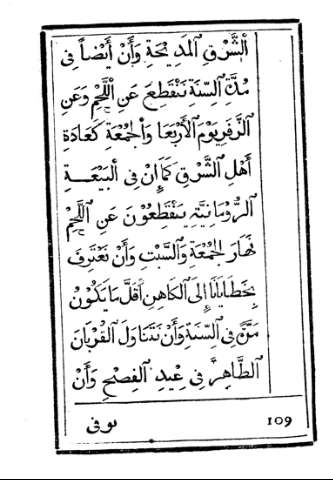 الشَّرْقِ المَدِيحَةِ وَأَنْ أَيْضاً فِى
مُدَّةِ السِّنَةِ نَنْقَطِعَ عَنِ اللَّحْمِ وَعَنِ
الزَّفَرِ يَوْمَ الأَرْبَعَا وَالْجُمْعَةِ كَعَادَةِ
أَهْلِ الشَّرْقِ كَمَا إِنْ فِى البَيْعَـــةِ
الرُّومَانِيَّةِ يَنْقَطِعُونَ عَنِ اللَّحْمِ
نَهَارَ الجُمْعَةِ وَالسَّبْتِ وَأَنْ نَعْتَرِفَ
بِخَطَايَانَا إِلَى الكَاهِنِ أَقَلَّ مَا يَكُونُ
مَرَّةً فِى السِّنَةِ وَأَنْ نَتَنَاوَلَ القُرْبَانَ
الطَّاهِرَ فِى عِيدِ الفِصْحِ وَأَنْ
109 نوفى